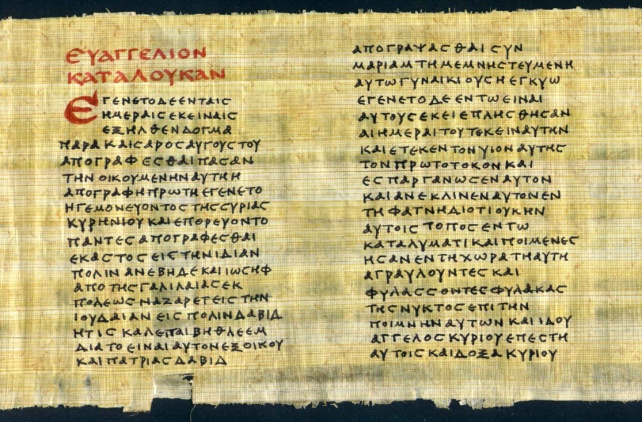 ΕΥΑΓΓΕΛΙΟΝ
ΚΑΤΑΛΟΥΚΑΝ
ΕΓΕΝΕΤΟΔΕΕΝΤΑΙϹ
ΗΜΕΡΑΙϹΕΚΕΙΝΑΙϹ
ΕΞΗΛΘΕΝΔΟΓΜΑ
ΠΑΡΑΚΑΙϹΑΡΟϹΑΥΓΟΥϹΤΟΥ
ΑΠΟΓΡΑΦΕϹΘΑΙΠΑϹΑΝ
ΤΗΝΟΙΚΟΥΜΕΝΗΝΑΥΤΗΗ
ΑΠΟΓΡΑΦΗΠΡΩΤΗΕΓΕΝΕΤΟ
ΗΓΕΜΟΝΕΥΟΝΤΟϹΤΗϹϹΥΡΙΑϹ
ΚΥΡΗΝΙΟΥΚΑΙΕΠΟΡΕΥΟΝΤΟ
ΠΑΝΤΕϹΑΠΟΓΡΑΦΕϹΘΑΙ
ΕΚΑϹΤΟϹΕΙϹΤΗΝΙΔΙΑΝ
ΠΟΛΙΝΑΝΕΒΗΔΕΚΑΙΙΩϹΗΦ
ΑΠΟΤΗϹΓΑΛΙΛΑΙΑϹΕΚ
ΠΟΛΕΩϹΝΑΖΑΡΕΤΕΙϹΤΗΝ
ΙΟΥΔΑΙΑΝΕΙϹΠΟΛΙΝΔΑΒΙΔ
ΗΤΙϹΚΑΛΕΠΑΙΒΗΘΛΕΕΜ
ΔΙΑΤΟΕΙΝΑΙΑΥΤΟΝΕΞΟΙΚΟΥ
ΚΑΙΠΑΤΡΙΑϹΔΑΒΙΔ
ΑΠΟΓΡΑΨΑϹΘΑΙϹΥΝ
ΜΑΡΙΑΜΤΗΜΕΜΝΗϹΤΕΥΜΕΝΗ
ΑΥΤΩΓΥΝΑΙΚΙΟΥϹΗΕΓΚΥΩ
ΕΓΕΝΕΤΟΔΕΕΝΤΩΕΙΝΑΙ
ΑΥΤΟΥϹΕΚΕΙΕΠΛΗϹΘΗϹΑΝ
ΑΙΗΜΕΡΑΙΤΟΥΤΕΚΕΙΝΑΥΤΗΝ
ΚΑΙΕΤΕΚΕΝΤΟΝΥΙΟΝΑΥΤΗϹ
ΤΟΝΠΡΩΤΟΤΟΚΟΝΚΑΙ
ΕϹΠΑΡΓΑΝΩϹΕΝΑΥΤΟΝ
ΚΑΙΑΝΕΚΛΙΝΕΝΑΥΤΟΝΕΝ
ΤΗΦΑΤΝΗΔΙΟΤΙΟΥΚΗΝ
ΑΥΤΟΙϹΤΟΠΟϹΕΝΤΩ
ΚΑΤΑΛΥΜΑΤΙΚΑΙΠΟΙΜΕΝΕϹ
ΗϹΑΝΕΝΤΗΧΩΡΑΤΗΑΥΤΗ
ΑΓΡΑΥΛΟΥΝΤΕϹΚΑΙ
ΦΥΛΑϹϹΟΝΤΕϹΦΥΛΑΚΑϹ
ΤΗϹΝΥΚΤΟϹΕΠΙΤΗΝ
ΠΟΙΜΝΗΝΑΥΤΩΝΚΑΙΙΔΟΥ
ΑΓΓΕΛΟϹΚΥΡΙΟΥΕΠΕϹΤΗ
ΑΥΤΟΙϹΚΑΙΔΟΞΑΚΥΡΙΟΥ